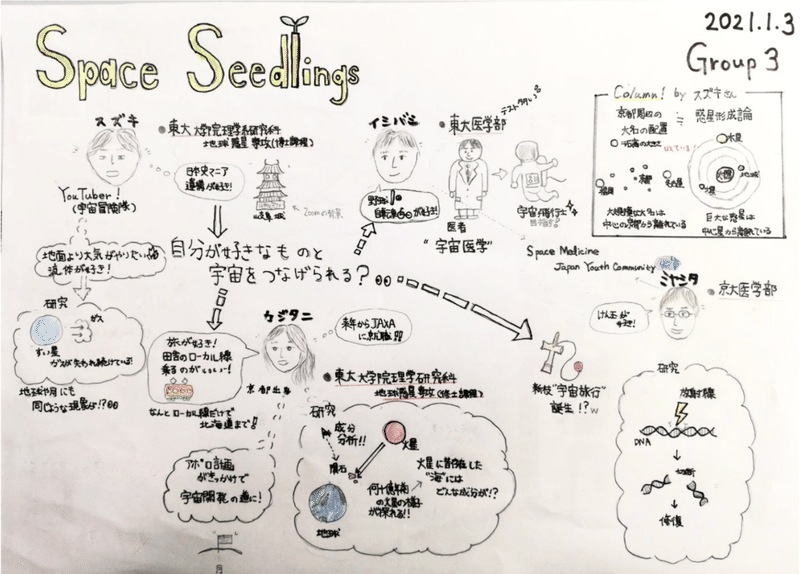 Space Seedlings
2021.1.3
Group 3
スズキ
東大 大学院理学系研究科
地球惑星専攻(博士課程)
日本史マニア
遺構が好き!
Zoomの背景
YouTuber!
(宇宙冒険隊)
地面より大気がやりたい
流体が好き!
研究
ガス
すい星
ガスが失われ続けている!
地球や月にも
同じような現象が!?
自分が好きなものと
宇宙をつなげられる?
イシバシ
東大医学部
野球
自転車が好き!
医者
"宇宙医学"
宇宙飛行士
Space Medicine
Japan Youth Community
Column! by スズキさん
京都周辺の
大名の配置
≒
惑星形成論
似ている!
福岡
京都
名古屋
大規模な大名は
中心の京都から離れている
水星
太陽
地球
火星
巨大な惑星は
中心星から離れている
ミヤシタ
京大医学部
けん玉が
好き!
新技"宇宙旅行"
誕生!?w
研究
放射線
DNA
切断
修復
カジタニ
来年からJAXA
に就職
旅が好き!
田舎のローカル線
乗るのがいいー!
京都出身
なんとローカル線だけで
北海道まで!
東大 大学院理学系研究科
地球惑星専攻(修士課程)
アポロ計画
がきっかけで
宇宙開発の道に!
月
研究
成分
分析!!
隕石
火星
地球
何十億年前
の火星の様子
が探れる!!
火星に昔存在した
"海"には
どんな成分が!?